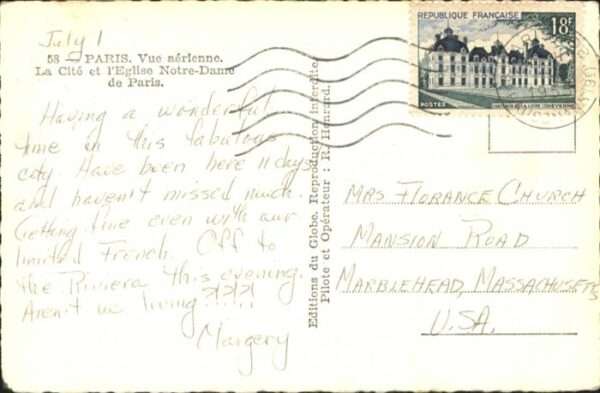 July 1
58 - PARIS. Vue aérienne.
La Cité et l'Eglise Notre-Dame
de Paris.
Having a wonderful
time in this fabulous
city. Have been here 11 days
and haven't missed much.
Getting fine even with our
limited French. Off to
the Riviera this evening.
Aren't we living ?!?!?!
Margery
Editions du Globe. Reproduction interdite.
Pilote et Opérateur : R. Henrard.
REPUBLIQUE FRANÇAISE
18F
POSTES
MRS FLORANCE CHURCH
MANSION ROAD
MARBLEHEAD, MASSACHUSETTS
U.S.A.